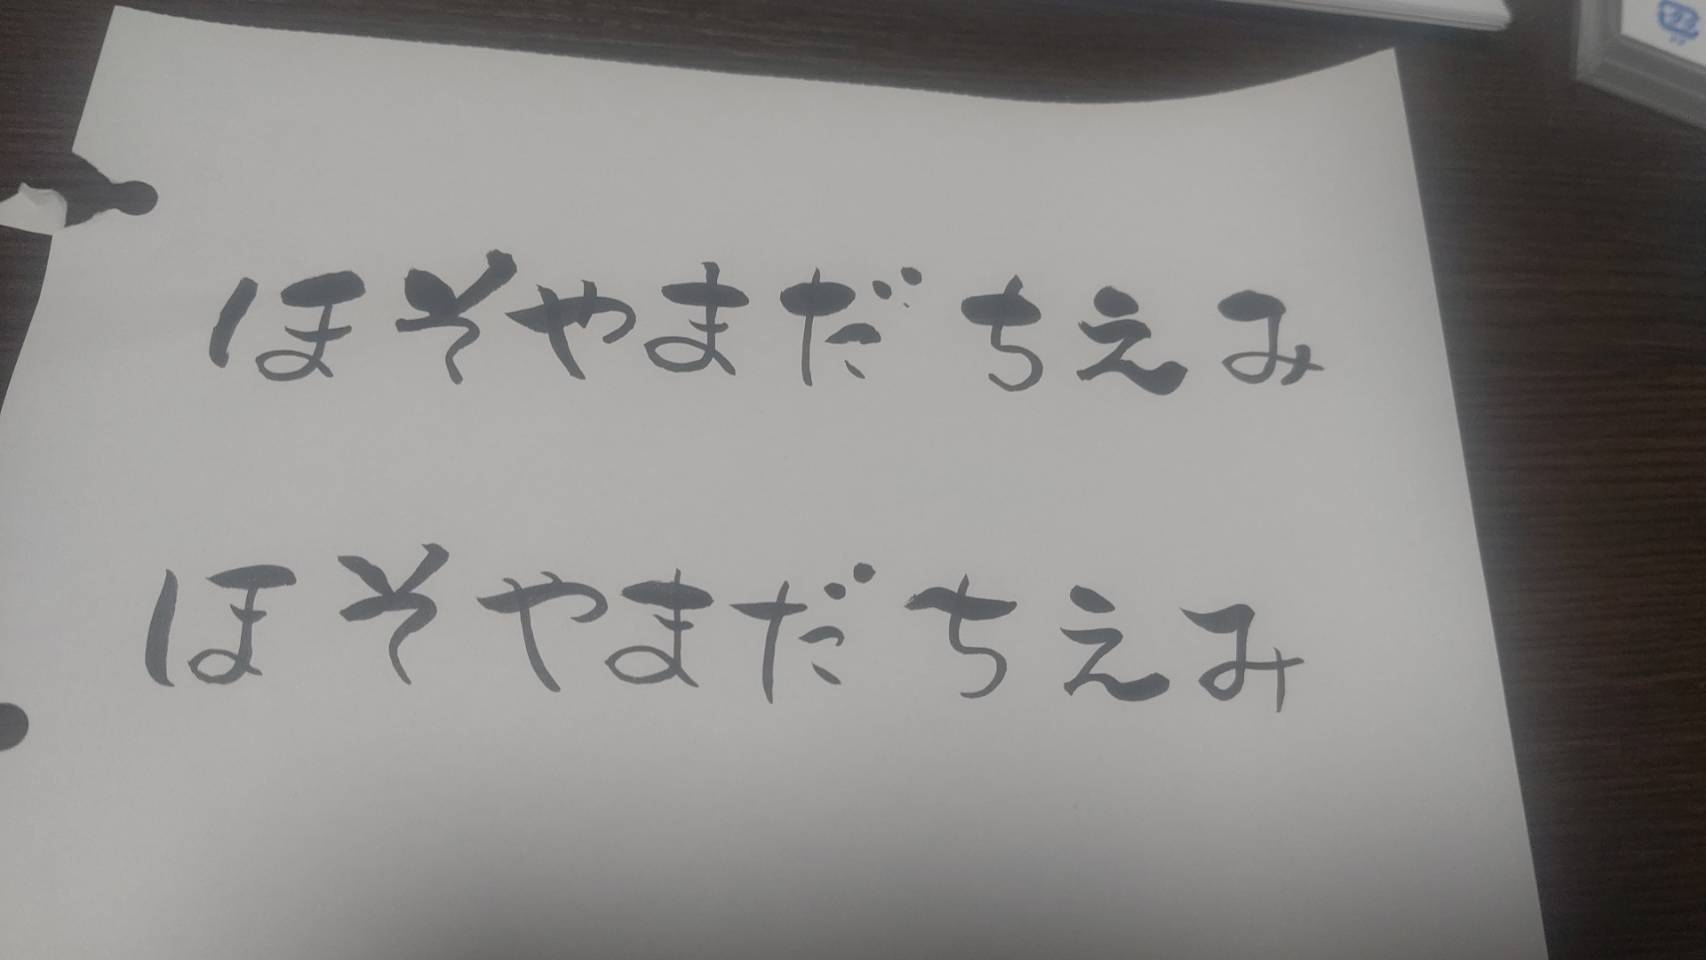 ほそやまだ ちえみ
ほそやまだ ちえみ